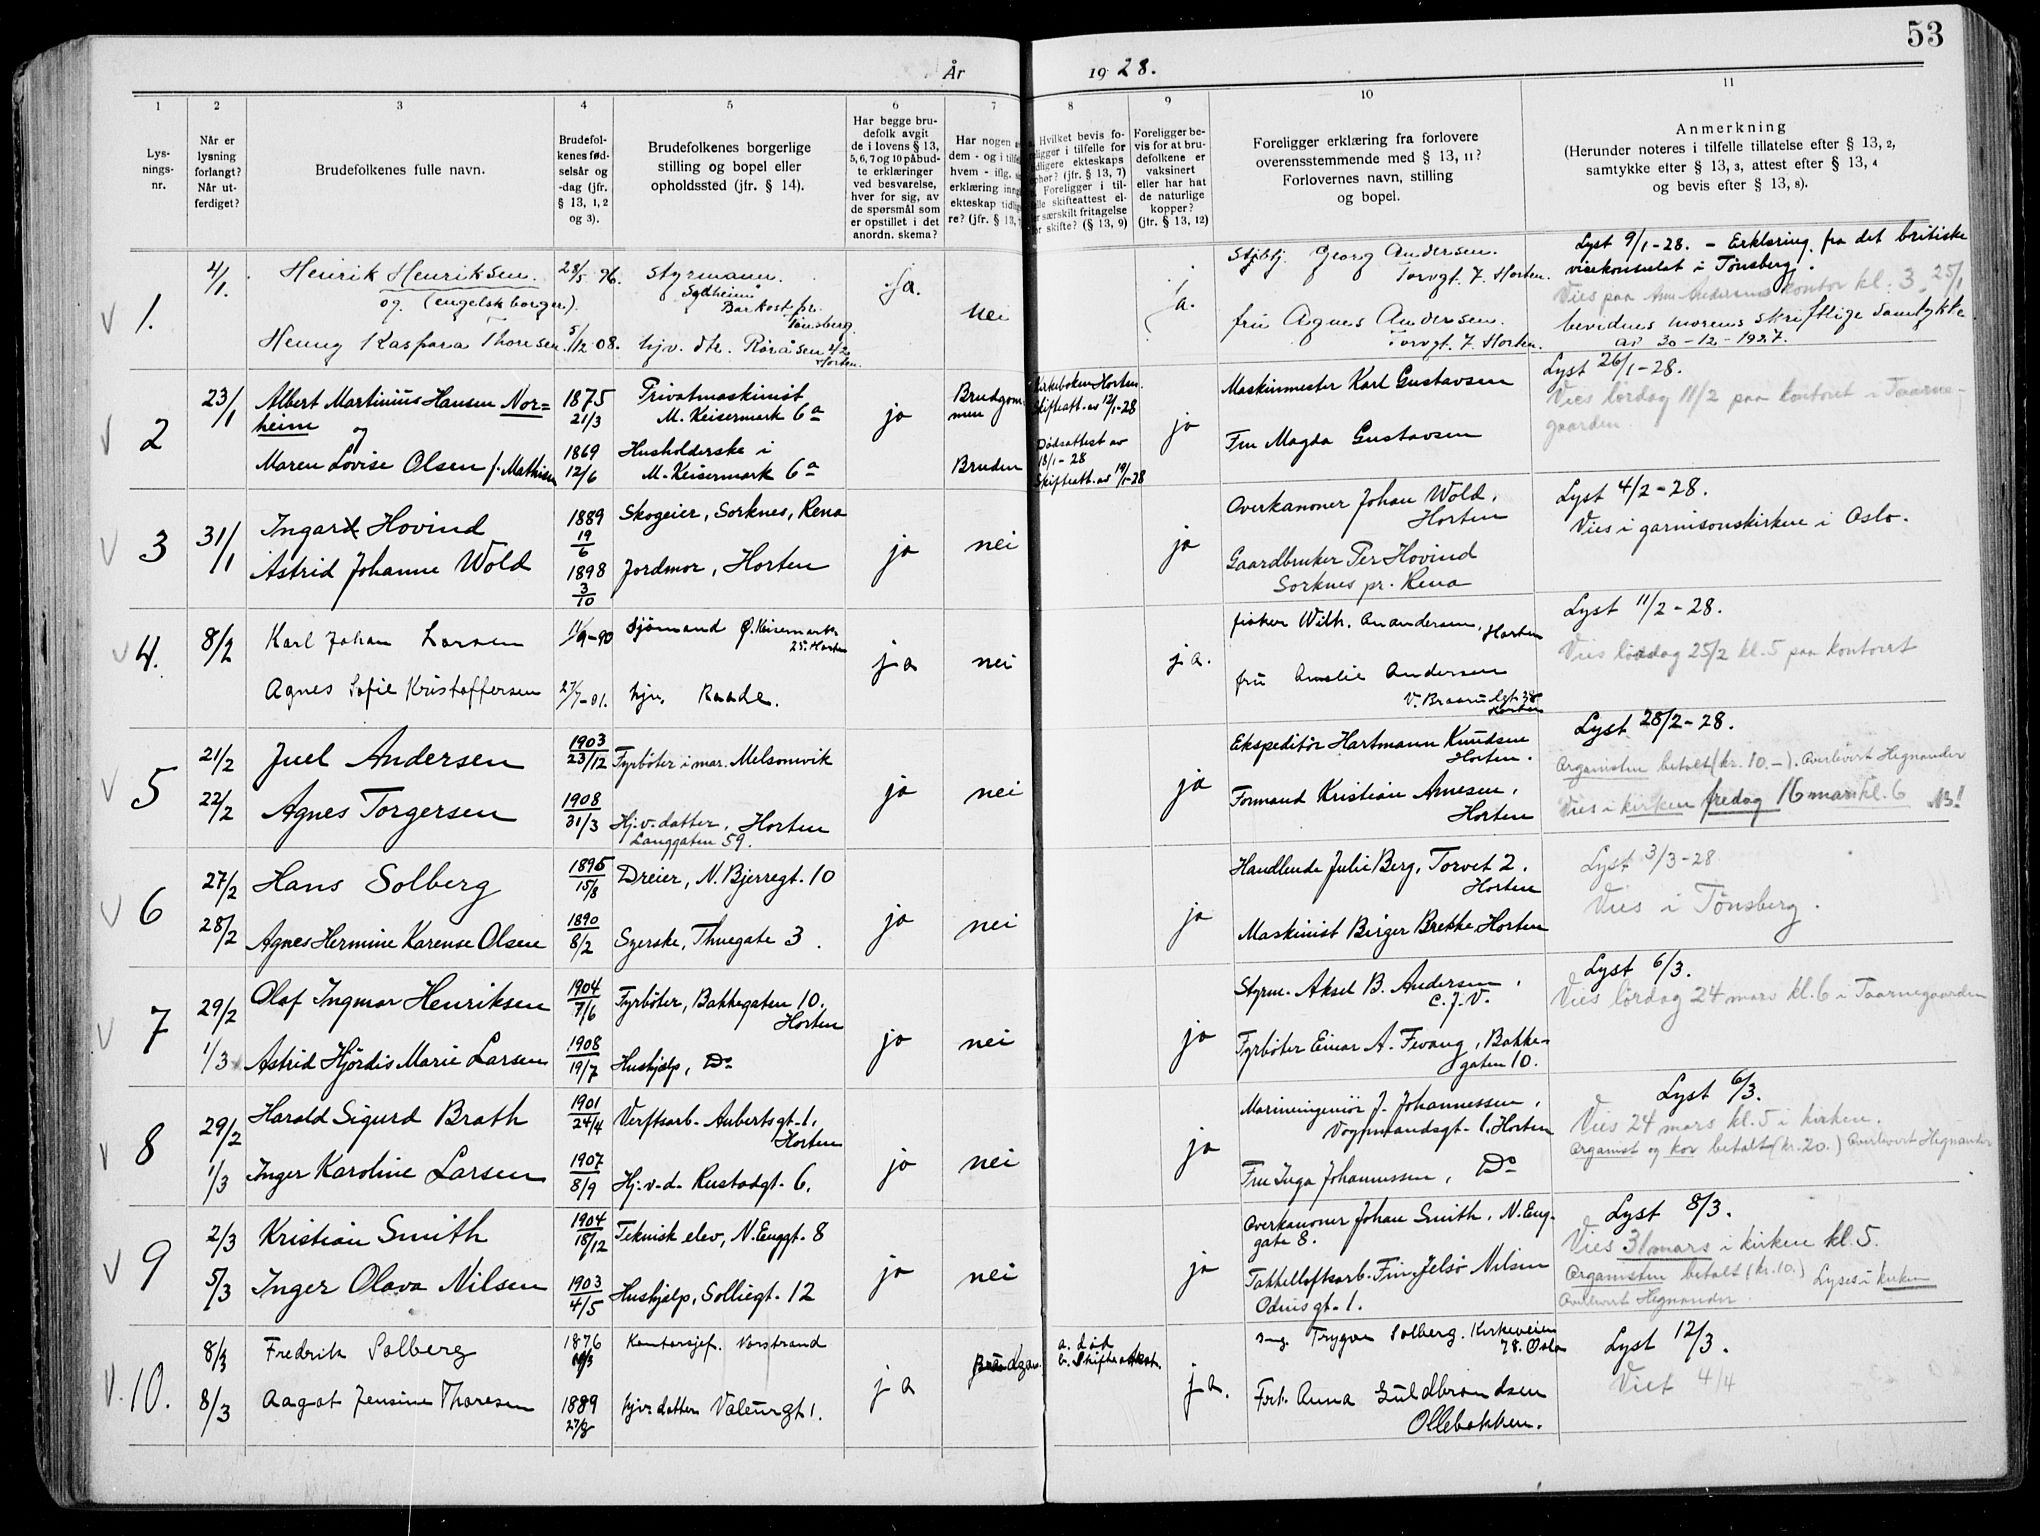 53
År 1928.
1 2 3 4 5 6 7 8 9 10 11
Lys-
nings-
nr.
Når er
lysning
forlangt?
Når ut-
ferdiget?
Brudefolkenes fulle navn.
Brudefol-
kenes fød-
selsår og
-dag (jfr.
§ 13, 1, 2
og 3).
Brudefolkenes borgerlige
stilling og bopel eller
opholdssted (jfr. § 14).
Har begge bru-
defolk avgit
de i lovens § 13,
5, 6, 7 og 10 påbud-
te erklæringer
ved besvarelse,
hver for sig, av
de spørsmål som
er opstillet i det
anordn. skema?
Har nogen
dem - og i tilf
hvem - iflg.
erklæring inn
ekteskap tidlig
re? (jfr. § 13,
Hvilket bevis fo-
religger i tilfelle for
ekteskaps
(jfr. § 13, 7)
Foreligger i til-
skifteattest el-
særskilt fritagelse
skifte? (§ 13, 9)
Foreligger be-
vis for at bru-
defolkene er
vaksinert
eller har hat
de naturlige
kopper?
(jfr. § 13, 12)
Foreligger erklæring fra forlovere
overensstemmende med § 13, 11?
Forlovernes navn, stilling
og bopel.
Anmerkning
(Herunder noteres i tilfelle tillatelse efter § 13, 2,
samtykke efter § 13, 3, attest efter § 13, 4
og bevis efter § 13, 8).
1. 4/1. Henrik Henriksen. 28/5 96. Styrmann.
og (engelsk borger). Solheim
Barkost pr.
Tønsberg.
Henny Kaspara Thoresen 5/12 08. hjv. dtr. Røråsen 2/2
Horten.
Ja. nei Ja.
Georg Andersen.
Torvgt. 7. Horten.
fru Agnes Andersen.
Torvgt. 7. Horten.
Lyst 9/1-28. - Erklæring fra det britiske
visekonsulat i Tønsberg.
Vies paa kontor kl. 3. 25/1
bevidnes morens skriftlige samtykke
av 30-12-1927.
2 23/1 Albert Martinius Hansen Nor=
heim og 1875 21/3 Privatmaskinist
M. Keisermark 6a
Maren Lovise Olsen f. Mathisen 1869 12/6 Husholderske i
M. Keisermark 6a
ja Brudgom-
men
Bruden
Kirkeboken Horten.
Skifteatt. av 12/1-28
Dødsattest av
18/1-28
Skifteatt. av 19/1-28
ja
Maskinmester Karl Gustavsen
Fru Magda Gustavsen
Lyst 26/1-28.
Vies lørdag 11/2 paa kontoret i Taarne-
gaarden.
3 31/1 Ingard Hovind 1889 19/6 Skogeier, Sorknes, Rena
Astrid Johanne Wold 1898 3/10 Jordmor, Horten
ja nei ja
Overkanoner Johan Wold,
Horten
Gaardbruker Per Hovind
Sorknes pr. Rena
Lyst 4/2-28.
Vies i garnisonskirken i Oslo.
4. 8/2 Karl Johan Larsen 11/9-90 Sjømand Ø. Keisemark
25 Horten
Agnes Sofie Kristoffersen 27/7-01. hjv. Raade.
ja nei ja.
fisker Wilh. Andersen, Horten
fru Amalie Andersen
V. Braarudgt. 38
Horten
Lyst 11/2-28.
Vies lørdag 25/2 kl. 5 paa kontoret
5 21/2 Juel Andersen 1903 23/12 Fyrbøter i mar. Melsomvik
22/2 Agnes Torgersen 1908 31/3 Hj.v. datter, Horten
Langgaten 59.
ja nei ja
Ekspeditør Hartmann Knudsen
Horten.
Formand Kristian Arnesen,
Horten
Lyst 28/2-28.
Organisten betalt (kr. 10.-). Overlevert Hegnander
Vies i kirken fredag 16 mars kl. 6 NB!
6 27/2 Hans Solberg 1895 15/8 Dreier, N. Bjerregt. 10
28/2 Agnes Hermine Karense Olsen 1890 8/2 Syerske, Thuegate 3.
ja nei ja
Handlende Julie Berg, Torvet 2.
Horten
Maskinist Birger Brekke, Horten
Lyst 3/3-28
Vies i Tønsberg.
7 29/2 Olaf Ingmar Henriksen 1904 7/6 Fyrbøter, Bakkegaten 10.
Horten
1/3 Astrid Hjørdis Marie Larsen 1908 19/7 Hushjælp, Do
ja nei ja
Styrm. Aksel B. Andersen,
C. J. V.
Fyrbøter Einar A. Fevang, Bakke-
gaten 10.
Lyst 6/3.
Vies lørdag 24 mars kl. 6 i Taarnegaarden
8 29/2 Harald Sigurd Brath 1901 24/4 Verftsarb. Aubertsgt. 1,
Horten
1/3 Inger Karoline Larsen 1907 8/9 Hj.v.d. Rustadgt. 6.
ja nei ja
Marineingeniør J. Johannessen,
Vognmandsgt. 1, Horten
Fru Inga Johannessen, Do
Lyst 6/3.
Vies 24 mars kl. 5 i kirken.
Organist og kor betalt (kr. 20.) Overlevert Hegnander
9 2/3 Kristian Smith 1904 18/12 Teknisk elev, N. Enggt. 8
5/3 Inger Olava Nilsen 1903 4/5 Hushjælp, Solliegt. 12
ja nei ja
Overkanoner Johan Smith, N. Eng-
gate 8.
Takkelloftsarb. Finn Jelsø Nilsen
Odinsgt. 1.
Lyst 8/3.
Vies 31 mars i kirken kl. 5.
Organisten betalt (kr. 10.) Lyses i kirken
Overlevert Hegnander
10. 8/3 Fredrik Solberg 1876 Kontorsjef. Norstrand
8/3 Aagot Jensine Thoresen 1889 27/8 hjv. datter Valeurgt. 1.
ja Brudgom.
a. død
b. Skifteattest.
ja.
ing. Trygve Solberg. Kirkeveien
78. Oslo
Frk. Anna Guldbrandsen
Ollebakken.
Lyst 12/3.
Viet 4/4